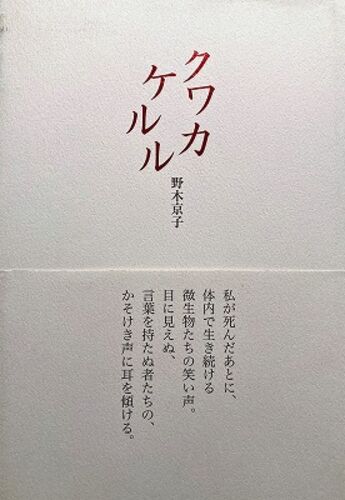 クワカ
ケルル
野木京子
私が死んだあとに、
体内で生き続ける
微生物たちの笑い声。
目に見えぬ、
言葉を持たぬ者たちの、
かそけき声に耳を傾ける。